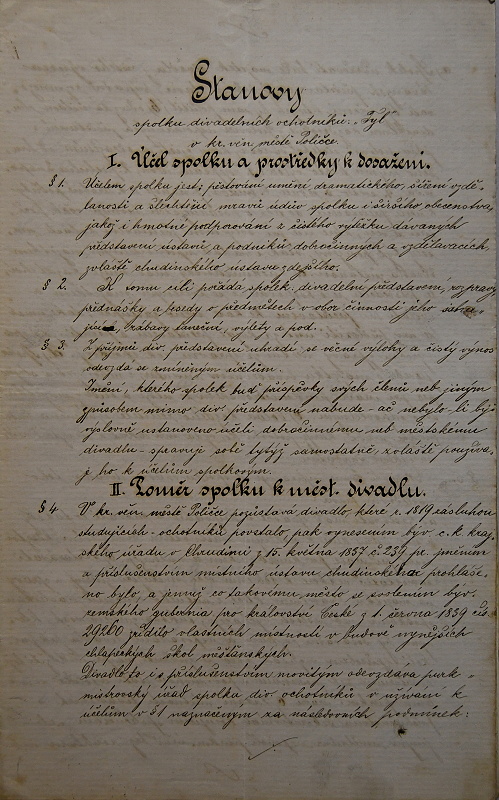 Stanovy
spolku divadelních ochotníků: „Tyl“
v kr. věn. městě Poličce.
I. Účel spolku a prostředky k dosažení.
§ 1. Účelem spolku jest: pěstování umění dramatického, šíření vzdě-
lanosti a šlechtění mravů údův spolku i širšího obecenstva,
jakož i hmotné podporování z čistého výtěžku davaných
představení ústavů a podniků dobročinných a vzdělavacích
zvláště chudinského ústavu zdejšího.
§ 2. K tomu cíli pořádá spolek, divadelní představení, rozpravy
přednášky a besedy o předmětech v obor činnosti jeho
zábavy taneční, výlety a pod.
§ 3. Z příjmů div. představení uhradí se věcné výlohy a čistý výnos
odevzdá se zmíněným účelům.
Jmění, kterého spolek buď příspěvky svých členů neb jiným
způsobem mimo div. představení nabude - ač nebylo-li by
výslovně ustanoveno účeli dobročinnému neb městskému
divadlu - spravuje sobě týž samostatně, zvláště používa-
je ho k účelům spolkovým.
II. Poměr spolku k měst. divadlu.
§ 4 V kr. věn. městě Poličce pozůstává divadlo, které r. 1819 zásluhou
studujících - ochotníků povstalo, pak vynesením býv. c. k. kraj-
ského úřadu v Chrudimi z 15. května 1837 č. 239 pr. jměním
a příslušenstvím místního ústavu chudinského prohláše-
no bylo, a jemuž co takovému město se svolením býv.
zemského gubernia pro království České z 1. června 1839 čís.
29260 zřídilo vlastních místností v budově nynějších
chlapeckých škol měšťanských.
Divadlo to i s příslušenstvím movitým odevzdává purk-
mistrovský úřad spolku div. ochotníků v užívání k
účelům v § 1 naznačeným za následovních podmínek: